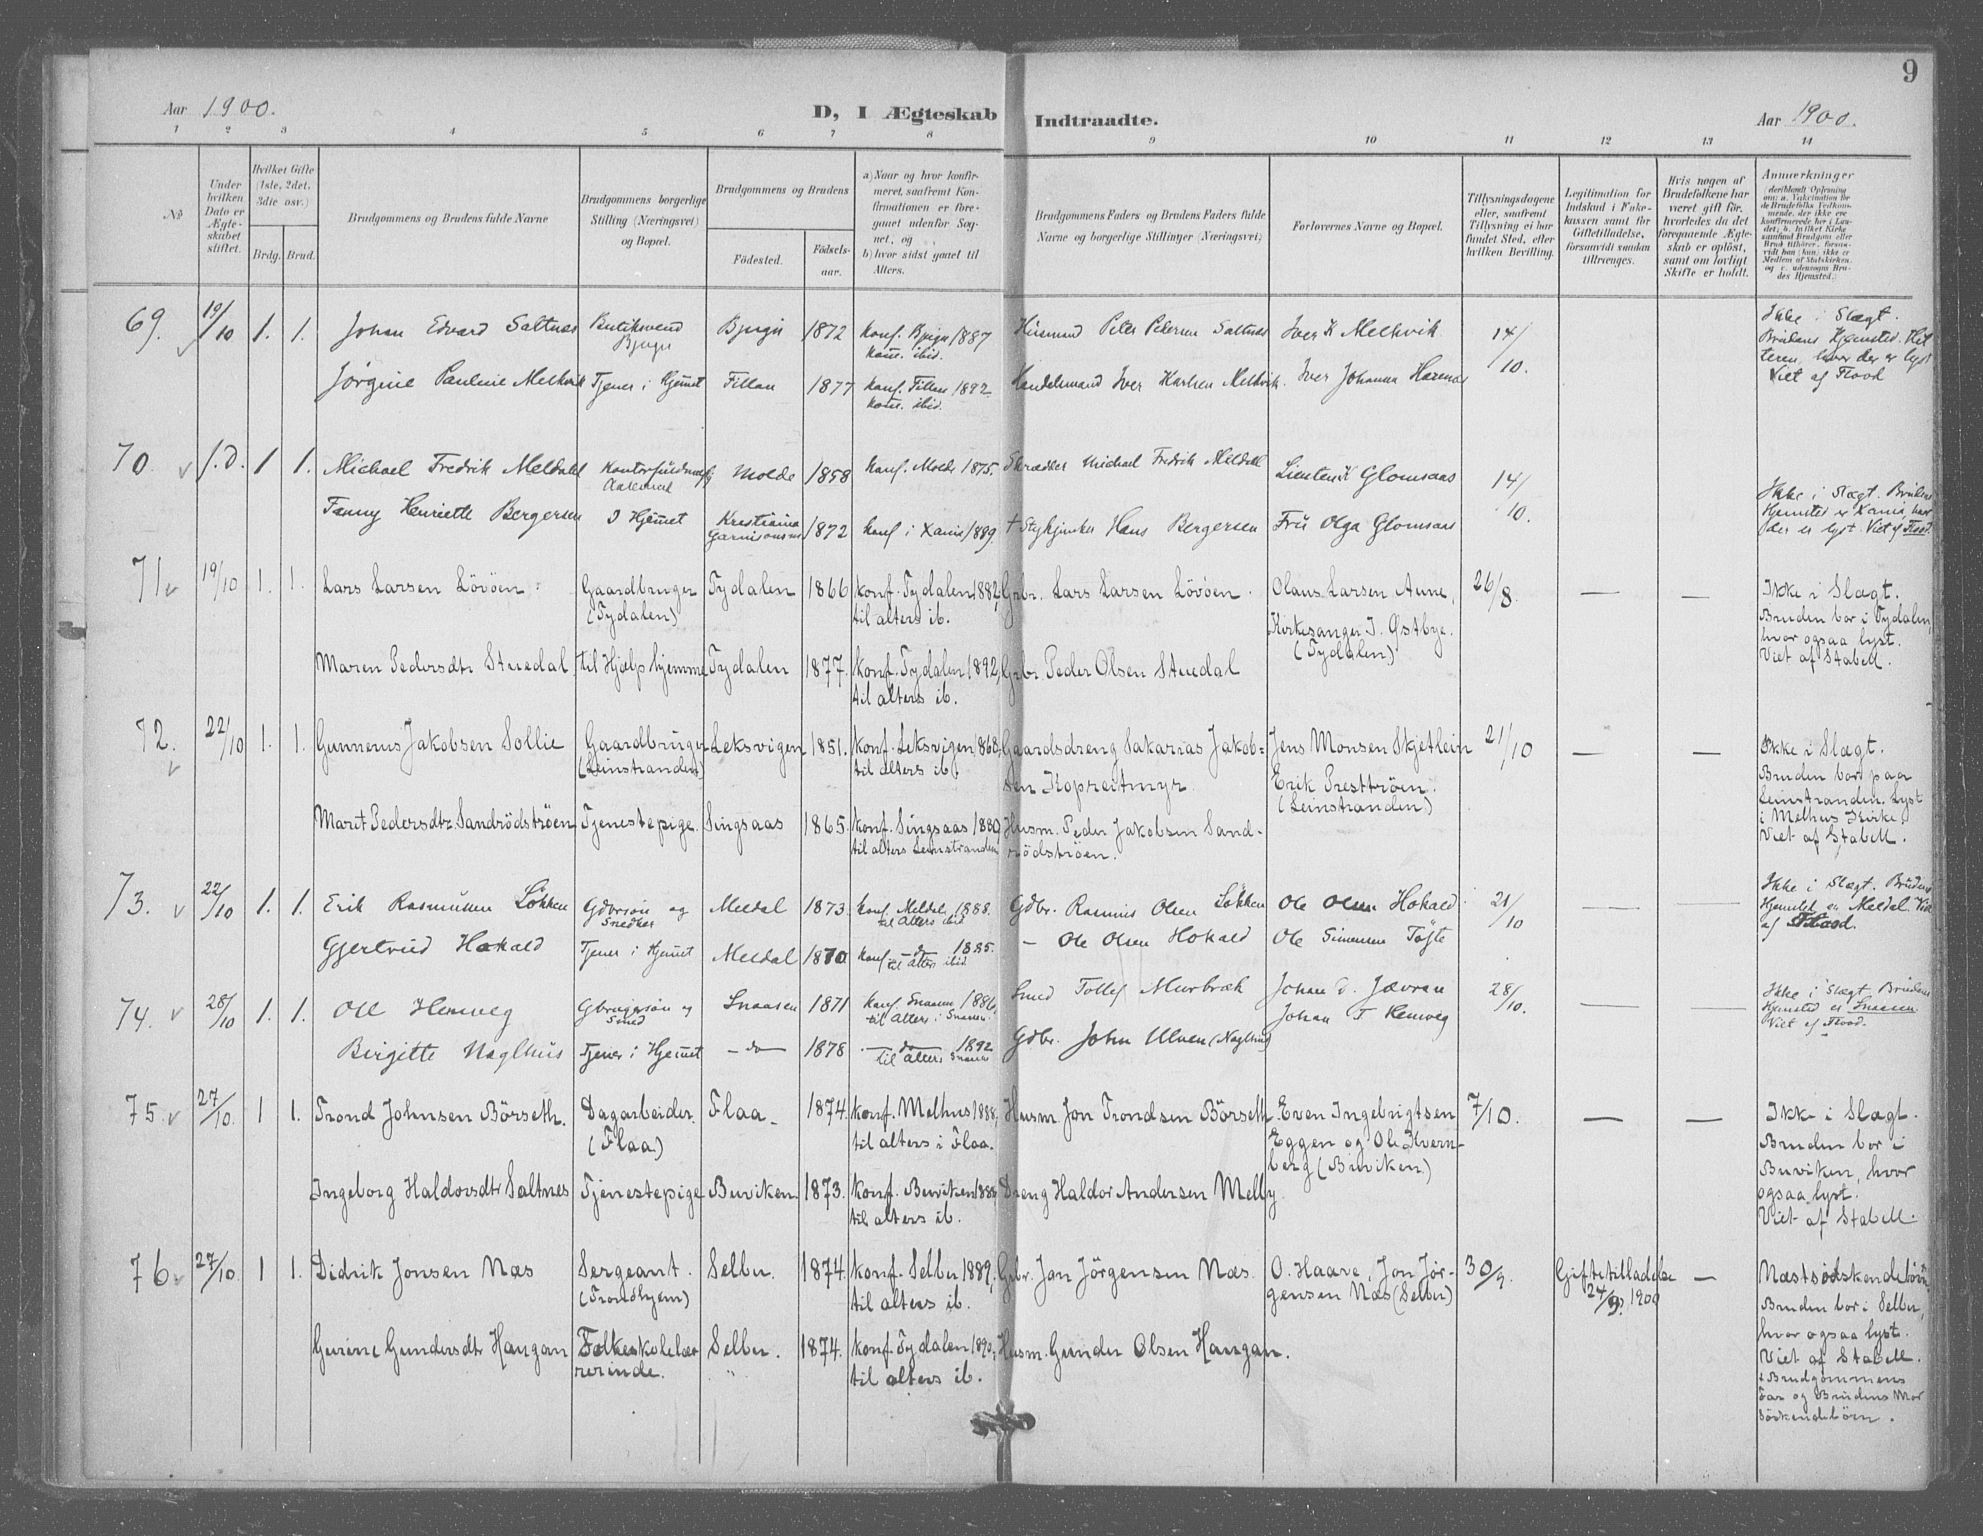 9
Aar 1900. D, I Ægteskab Indtraadte. Aar 1900.
1 2 3 4 5 6 7 8 9 10 11 12 13 14
No
Under hvilken Dato er Ægteskabet stiftet.
Hvilket Gifte (1ste, 2det, 3die osv.)
Brdg. Brud.
Brudgommens og Brudens fulde Navne
Brudgommens borgerlige Stilling (Næringsvei) og Bopæl.
Brudgommens og Brudens
Fødested. Fødselsaar.
a) Naar og hvor konfirmeret, saafremt Konfirmationen er foregaaet udenfor Sognet, og
b) hvor sidst gaaet til Alters.
Brudgommens Faders og Brudens Faders fulde Navne og borgerlige Stillinger (Næringsvei)
Forlovernes Navne og Bopæl.
Tillysningsdagene eller, saafremt Tillysning ei har fundet Sted, efter hvilken Bevilling.
Legitimation for Indskud i Enkekassen samt for Giftetilladelse, forsaavidt saadan tiltrænges.
Hvis nogen af Brudefolkene har været gift før, hvorledes da det foregaaende Ægteskab er opløst, samt om lovligt Skifte er holdt.
Anmerkninger
69. 19/10 1. 1. Johan Edvard Saltnes Butiksvend Bjugn Bjugn 1872 konf. Bjugn 1887 kom. ibid. Husmand Peter Petersen Saltnes Iver K Melkvik 14/10. Ikke i Slægt. Brudens Hjemsted Hitteren, hvor der er lyst Viet af Flood
Jørgine Pauline Melkvik Tjener i Hjemmet Fillan 1877 konf. Fillan 1892 kom. ibid. Handelsmand Iver Karlsen Melkvik. Iver Johannes
70. f.D. 1 1. Michael Fredrik Meldahl Molde 1858 konf. Molde 1875. Skrædder Michael Fredrik Meldahl Glomsaas 14/10.
Fanny Henriette Bergersen I Hjemmet Kristiania 1872 konf i Xania 1889. † Stykjunker Hans Bergersen Fru Olga Glomsaas Ikke i Slægt. Brudens Hjemsted er Xania, hvor der er lyst. Viet af Flood.
71 19/10 1. 1. Lars Larsen Lövöen Gaardbruger (Tydalen) Tydalen 1866 konf. Tydalen 1882, til alters ib. Grbr. Lars Larsen Lövöen. Olaus Larsen Aune, Kirkesanger J. Østbye. (Tydalen) 26/8. — — Ikke i Slægt. Bruden bor i Tydalen, hvor ogsaa lyst. Viet af Stabell.
Maren Pedersdtr Stuedal. til Hjelp hjemme Tydalen 1877. konf. Tydalen 1892, til alters ib. Grbr. Peder Olsen Stuedal
72. 22/10 1. 1. Gunnerus Jakobsen Sollie Gaardbruger (Leinstranden) Leksvigen 1851. konf. Leksvigen 1868, til alters ib. Gaardsdreng Sakarias Jakobsen Kopreitmyr Jens Monsen Skjetlein Erik Presttröen. (Leinstranden) 21/10 — — Ikke i Slægt. Bruden bor paa Leinstranden. Lyst i Melhus Kirke. Viet af Stabell.
Marit Pedersdtr. Sandrödströen Tjenestepige. Singsaas 1865. konf. Singsaas 1880, til alters Leinstranden Husm. Peder Jakobsen Sandrödströen.
73. 22/10 1. 1. Erik Rasmussen Løkken Gdbrsøn og Snedker Meldal 1873. konf. Meldal 1888. til Alters ibid Gdbr. Rasmus Olsen Løkken Ole Olsen Hokald 21/10 Ikke i Slægt. Brudens Hjemsted er Meldal. Viet af Flood.
Gjertrud Hokald Tjener i Hjemmet Meldal 1870 konf — do — 1885. til Alters ibid — Ole Olsen Hokald Ole Simensen Tøfte
74. 28/10 1. 1. Oll Hemveg Gbrugersøn og Smed Snaasen 1871 konf Snaasen 1886, til Alters i Snaasen. Smed Tollef Murbræk Johan Jævran Johan T Hemveg 28/10. Ikke i Slægt. Brudens Hjemsted er Snaasen. Viet af Flood.
Birgitte Naglhus Tjener i Hjemmet — do — 1878 — do — 1892 til Alters Snaasen Gdbr. John Ulven (Naglhus)
75. 27/10. 1 1. Trond Johnsen Börseth. Dagarbeider. (Flaa) Flaa. 1874. konf. Melhus 1888, til alters i Flaa. Husm. Jon Trondsen Börseth Even Ingebrigtsen Eggen og Ole Kvernberg (Buviken) 7/10. — — Ikke i Slægt. Bruden bor i Buviken, hvor ogsaa lyst. Viet af Stabell.
Ingeborg Haldorsdtr Saltnes Tjenestepige Buviken 1873. konf. Buviken 1888, til alters ib. Dreng Haldor Andersen Melby
76 27/10. 1 1. Didrik Jonsen Næs Sergeant. (Trondhjem) Selbu. 1874. konf. Selbu 1889, til alters ib. Grbr. Jon Jörgensen Næs. O. Haave, Jon Jörgensen Næs (Selbu) 30/9. Giftetilladelse 24/9. 1900 — Næstsödskendebörn. Bruden bor i Selbu, hvor ogsaa lyst. Viet af Stabell. + Brudgommens Far og Brudens Mor Södskendebörn.
Gurine Gundersdtr Haugan Folkeskolelærerinde. Selbu. 1874. konf. Tydalen 1890, til alters ib. Husm. Gunder Olsen Haugan.